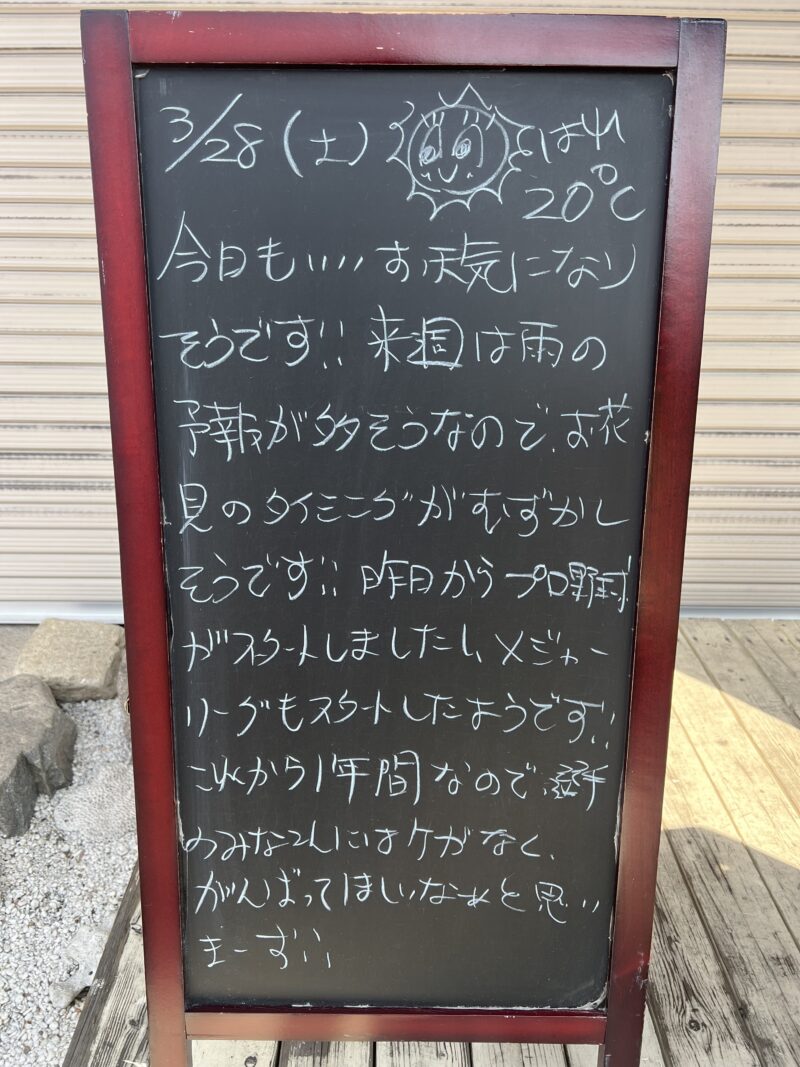 3/28(土) はれ
20℃
今日もいいお天気になり
そうです!! 来週は雨の
予報が多そうなので、お花
見のタイミングがむずかし
そうです!! 昨日からプロ野球
がスタートしましたし、メジャー
リーグもスタートしたようです!!
これから1年間なので、選手
のみなさんにはケガなく、
がんばってほしいなぁと思い
まーす!!